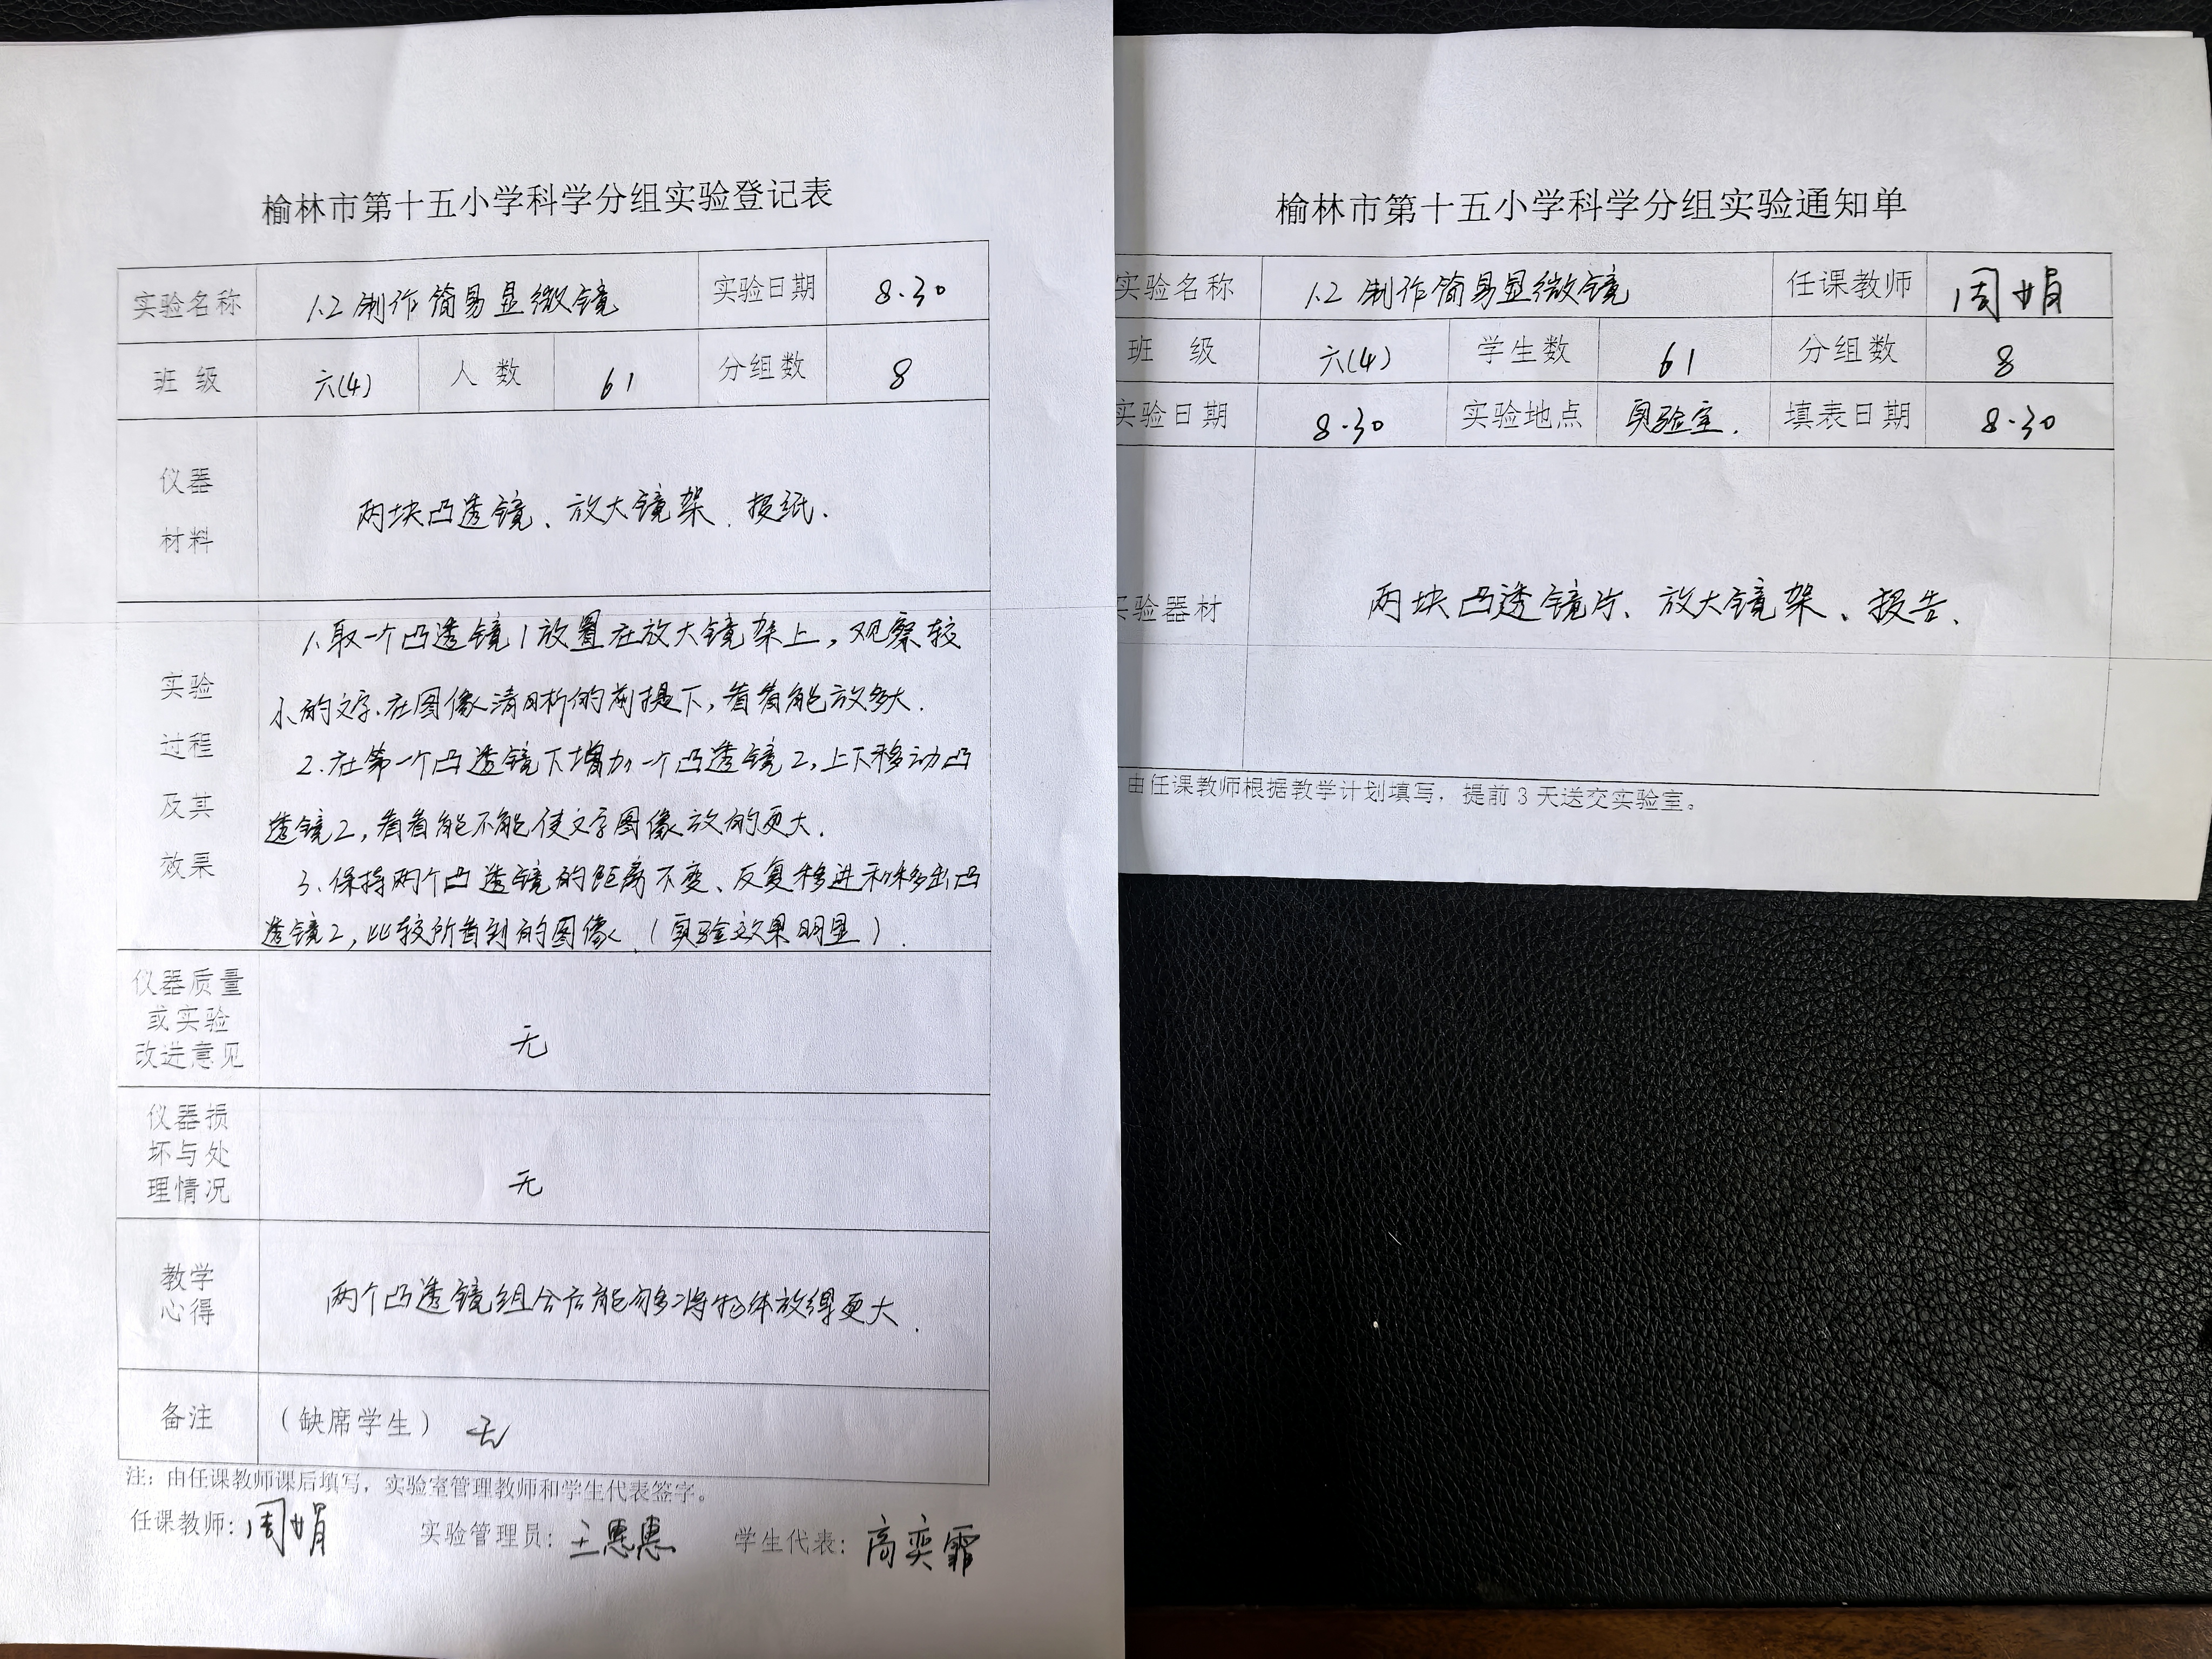 榆林市第十五小学科学分组实验登记表
实验名称 1.2 制作简易显微镜 实验日期 8.30
班级 六(4) 人数 61 分组数 8
仪器
材料
两块凸透镜、放大镜架、报纸.
实验
过程
及其
效果
1.取一个凸透镜1放置在放大镜架上,观察较
小的文字.在图像清晰的前提下,看看能放多大.
2.在第一个凸透镜下增加一个凸透镜2,上下移动凸
透镜2,看看能不能使文字图像放的更大.
3.保持两个凸透镜的距离不变、反复移进和移出凸
透镜2,比较所看到的图像.(实验效果明显).
仪器质量
或实验
改进意见
无
仪器损
坏与处
理情况
无
教学
心得
两个凸透镜组合后能够将物体放得更大.
备注 (缺席学生) 无
注:由任课教师课后填写,实验室管理教师和学生代表签字。
任课教师:周娟 实验管理员:王惠惠 学生代表:高奕霏
榆林市第十五小学科学分组实验通知单
实验名称 1.2 制作简易显微镜 任课教师 周娟
班 级 六(4) 学生数 61 分组数 8
实验日期 8.30 实验地点 实验室. 填表日期 8.30
实验器材 两块凸透镜片、放大镜架、报告、
由任课教师根据教学计划填写,提前3天送交实验室。